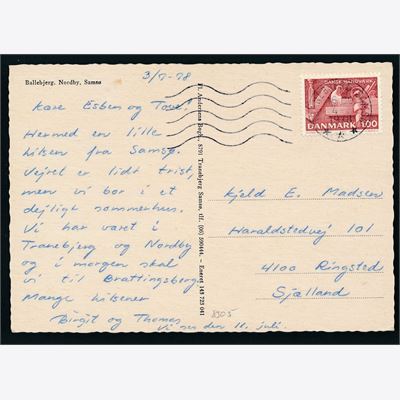 Ballebjerg. Nordby, Samsø
3/7-78
Kære Esben og Tove!
Hermed en lille
hilsen fra Samsø.
Vejret er lidt trist,
men vi bor i et
dejligt sommerhus.
Vi har været i
Tranebjerg og Nordby
og i morgen skal
vi til Brattingsborg.
Mange hilsener
Birgit og Thomas
Vi ses den 11. juli.
Fl. Andersens Bogh., 8791 Tranebjerg Samsø, tlf. (06) 590444. - Eneret 145 723 041
DANSK HÅNDVÆRK
DANMARK 100
Kjeld E. Madsen
Haraldstedvej 101
4100 Ringsted
Sjælland
8305